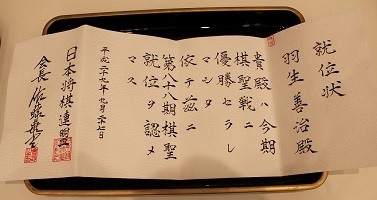 就位状
羽生善治殿
貴殿ハ今期
棋聖戦ニ
優勝セラレ
マシタ
依テ茲ニ
第八十八期棋聖
就位ヲ認メ
マス
平成二十九年九月二十七日
日本将棋連盟
会長 佐藤康光